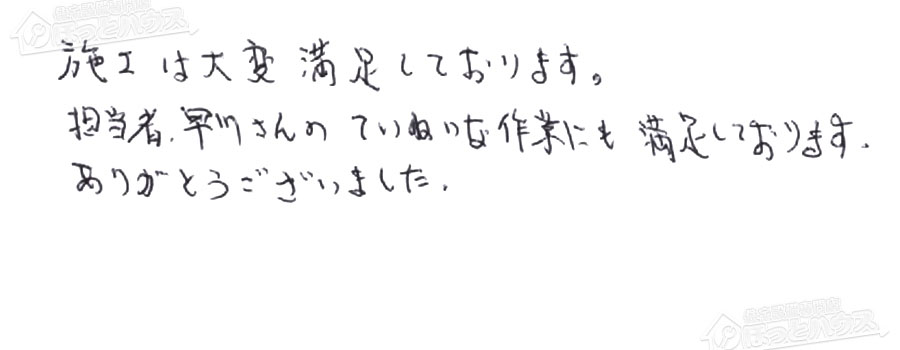 施工は大変満足しております。
担当者、早川さんのていねいな作業にも満足しております。
ありがとうございました。
ほっとハウス
ほっとハウス